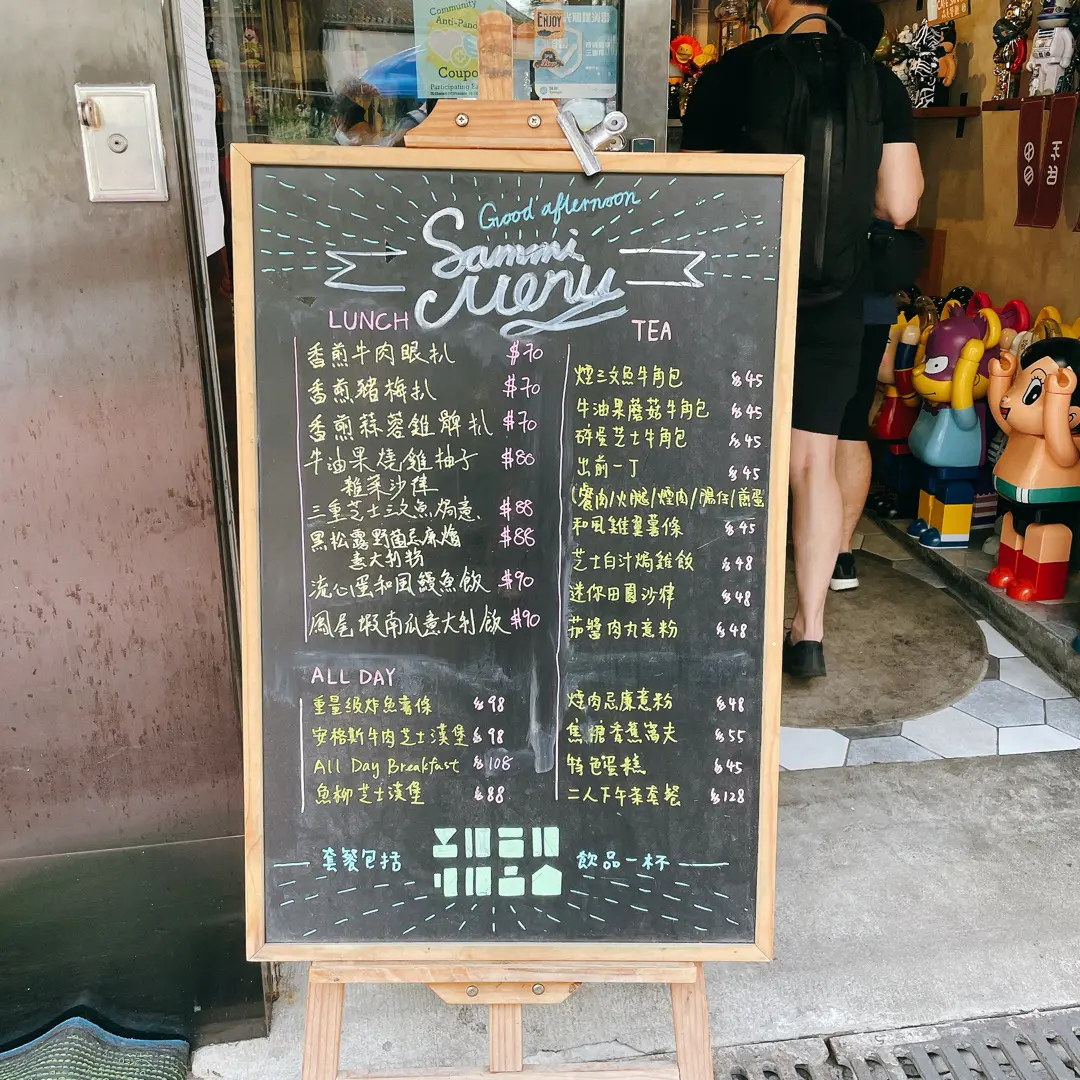 Community
Anti-Pand
Coupo
Participating Ea
ENJOY
Good afternoon
Sammi
Menu
LUNCH
香煎牛肉眼扒 $70
香煎豬梅扒 $70
香煎蒜蓉雞髀扒 $70
牛油果燒雞柚子 $80
雜菜沙律
三重芝士三文魚焗意 $88
黑松露野菌忌廉燴 $88
意大利粉
流心蛋和風鰻魚飯 $90
鳳尾蝦南瓜意大利飯 $90
ALL DAY
重量級炸魚薯條 $98
安格斯牛肉芝士漢堡 $98
All Day Breakfast $108
魚柳芝士漢堡 $88
TEA
煙三文魚牛角包 $45
牛油果蘑菇牛角包 $45
碎蛋芝士牛角包 $45
出前一丁 $45
(餐肉/火腿/煙肉/腸仔/煎蛋
和風雞翼薯條 $45
芝士白汁焗雞飯 $48
迷你田園沙律 $48
茄醬肉丸意粉 $48
煙肉忌廉意粉 $48
焦糖香蕉窩夫 $55
特色蛋糕 $45
二人下午茶套餐 $128
套餐包括
飲品一杯